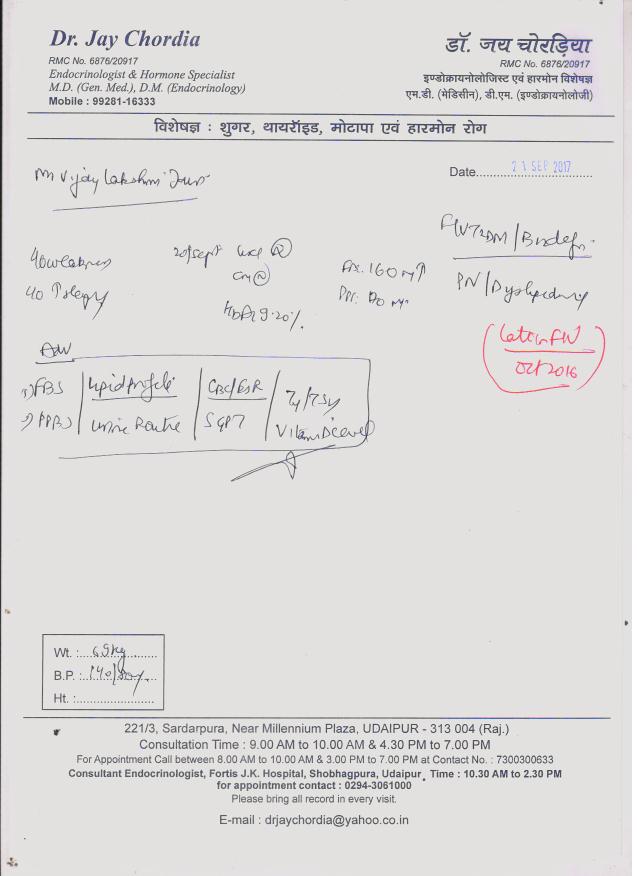 Dr. Jay Chordia
RMC No. 6876/20917
Endocrinologist & Hormone Specialist
M.D. (Gen. Med.), D.M. (Endocrinology)
Mobile : 99281-16333
डॉ. जय चोरड़िया
RMC No. 6876/20917
इण्डोक्रायनोलोजिस्ट एवं हारमोन विशेषज्ञ
एम.डी. (मेडिसीन), डी.एम. (इण्डोक्रायनोलोजी)
विशेषज्ञ : शुगर, थायरॉइड, मोटापा एवं हारमोन रोग
Date 21 SEP 2017
Vijay Lakshmi
F/U T2DM /
PN / Dyslipidemia
40 weakness
40
20/Sept
HbA1 9.20%
160
Last in F/U
Oct 2016
Adv
1) FBS / Lipid profile / CBC/ESR / T4/TSH
2) PPBS / Urine Routine / SGPT / Vitamin D level
Wt. : 69kg
B.P. : 140/80
Ht. :
221/3, Sardarpura, Near Millennium Plaza, UDAIPUR - 313 004 (Raj.)
Consultation Time : 9.00 AM to 10.00 AM & 4.30 PM to 7.00 PM
For Appointment Call between 8.00 AM to 10.00 AM & 3.00 PM to 7.00 PM at Contact No. : 7300300633
Consultant Endocrinologist, Fortis J.K. Hospital, Shobhagpura, Udaipur, Time : 10.30 AM to 2.30 PM
for appointment contact : 0294-3061000
Please bring all record in every visit.
E-mail : drjaychordia@yahoo.co.in